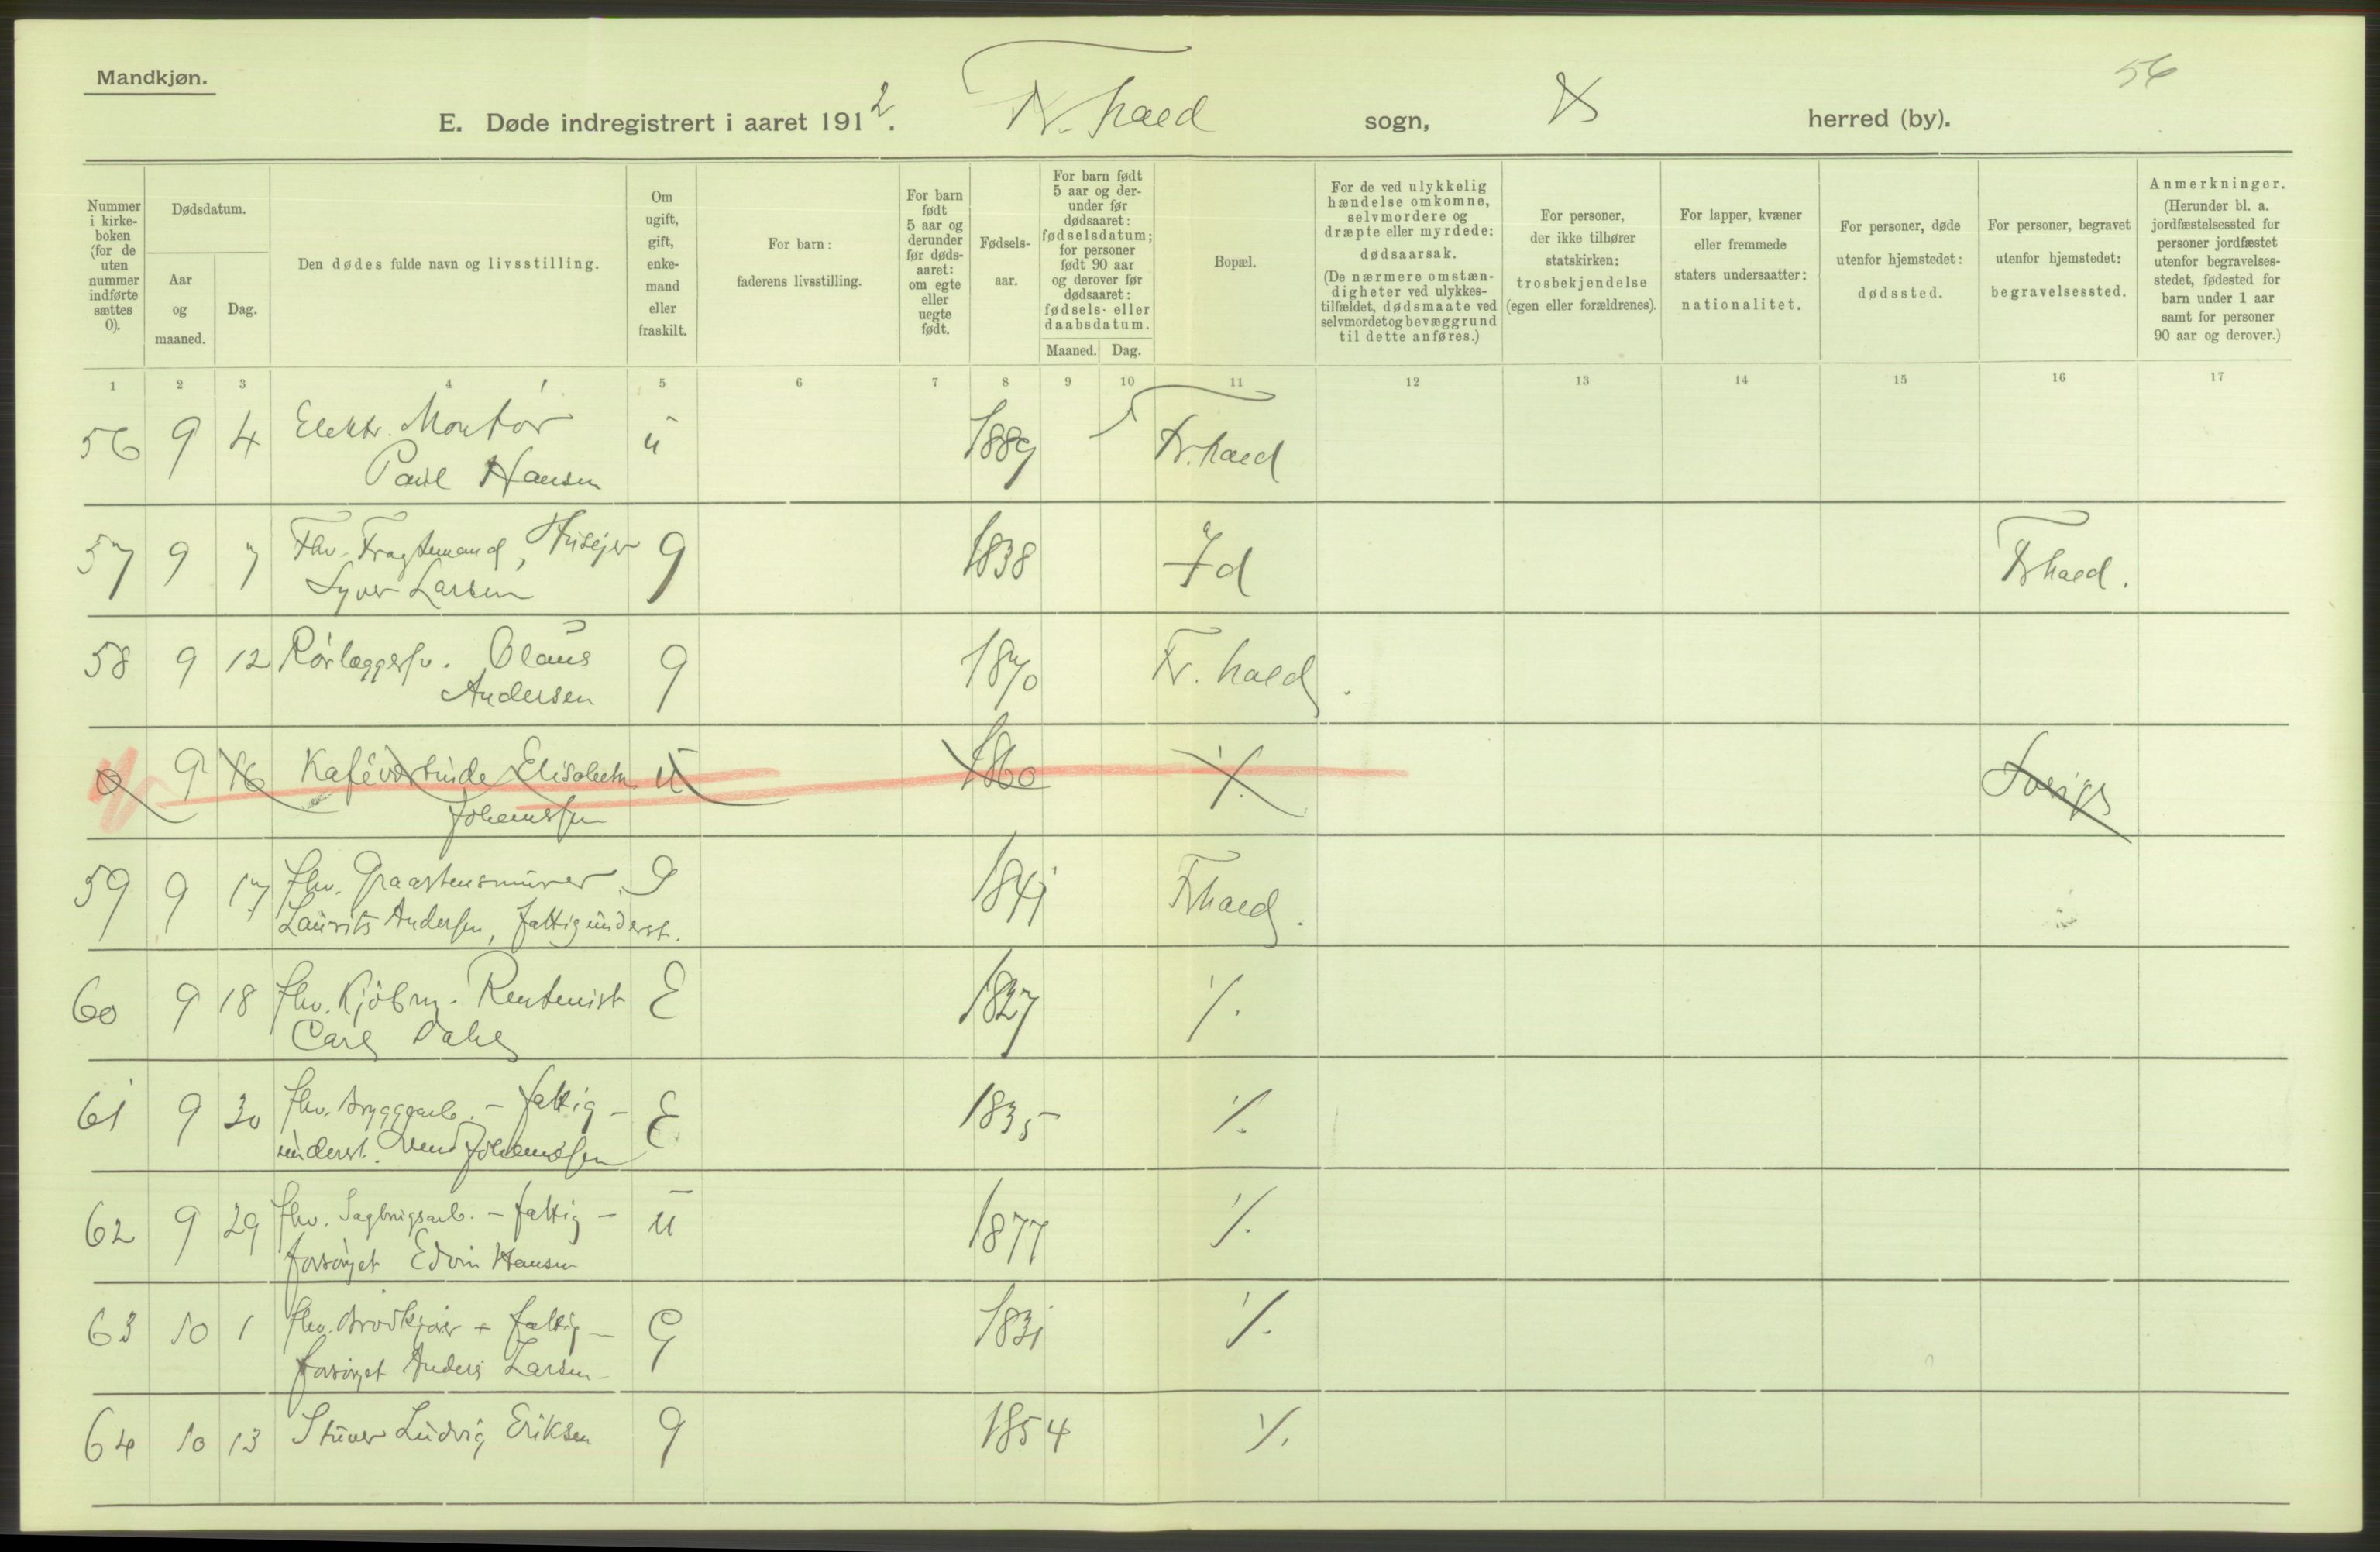 Mandkjøn.
56
E. Døde indregistrert i aaret 1912. Fr.hald sogn, herred (by).
Nummer i kirkeboken (for de uten nummer indførte sættes 0).
Dødsdatum.
Aar og maaned.
Dag.
Den dødes fulde navn og livsstilling.
Om ugift, gift, enkemand eller fraskilt.
For barn: faderens livsstilling.
For barn født 5 aar og derunder før dødsaaret: om egte eller uegte født.
Fødselsaar.
For barn født 5 aar og derunder før dødsaaret: fødselsdatum; for personer født 90 aar og derover før dødsaaret: fødsels- eller daabsdatum.
Maaned. Dag.
Bopæl.
For de ved ulykkelig hændelse omkomne, selvmordere og dræpte eller myrdede: dødsaarsak. (De nærmere omstændigheter ved ulykkestilfældet, dødsmaate ved selvmordet og bevæggrund til dette anføres.)
For personer, der ikke tilhører statskirken: trosbekjendelse (egen eller forældrenes).
For lapper, kvæner eller fremmede staters undersaatter: nationalitet.
For personer, døde utenfor hjemstedet: dødssted.
For personer, begravet utenfor hjemstedet: begravelsessted.
Anmerkninger. (Herunder bl. a. jordfæstelsessted for personer jordfæstet utenfor begravelsesstedet, fødested for barn under 1 aar samt for personer 90 aar og derover.)
1 2 3 4 5 6 7 8 9 10 11 12 13 14 15 16 17
56 9 4 Elektr. Montör u 1889 Fr.hald
Paul Hansen
57 9 7 Fhv. Fragtemand, Husejer g 1838 Id Frhald.
Syver Larsen
58 9 12 Rörlæggersv. Olaus g 1870 Fr. hald.
Andersen
0 9 16 Kaféværtinde Elisabeth u 1860 ./. Sverige
Johannesen
59 9 17 fhv. Graastensmurer g 1841 Frhald.
Laurits Andersen, fattigunderst.
60 9 18 fhv. Kjöbm. Rentenist E 1827 ./.
Carl Dahl
61 9 30 fhv. Bryggearb. - fattig- E 1835 ./.
underst. Svend Johannesen
62 9 29 fhv. Sagbrugsarb. - fattig- u 1877 ./.
forsörget Edvin Hansen
63 10 1 fhv. Brödkjörer - fattig- G 1831 ./.
forsörget Anders Larsen
64 10 13 Stuver Ludvig Eriksen g 1854 ./.